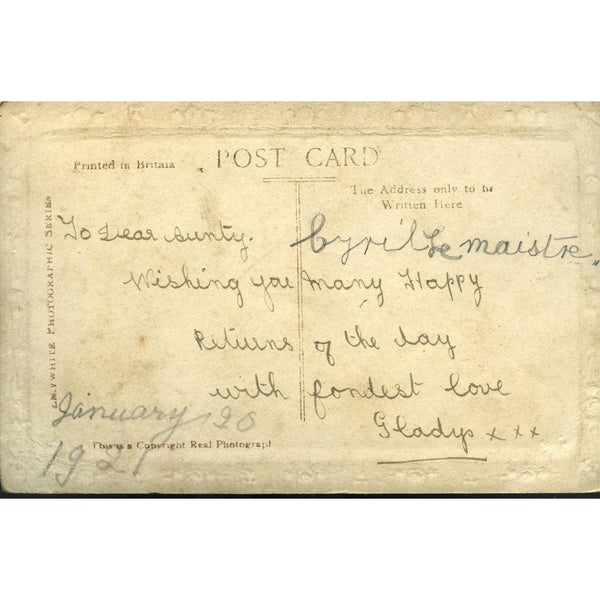 POST CARD
Printed in Britain
The Address only to be
Written Here
To Dear Aunty.
Cyril Le maistre
Wishing you many Happy
Returns of the day
with fondest love
Gladys x x x
January 20
1921
This is a Copyright Real Photograph
PHOTOGRAPHIC SERIES